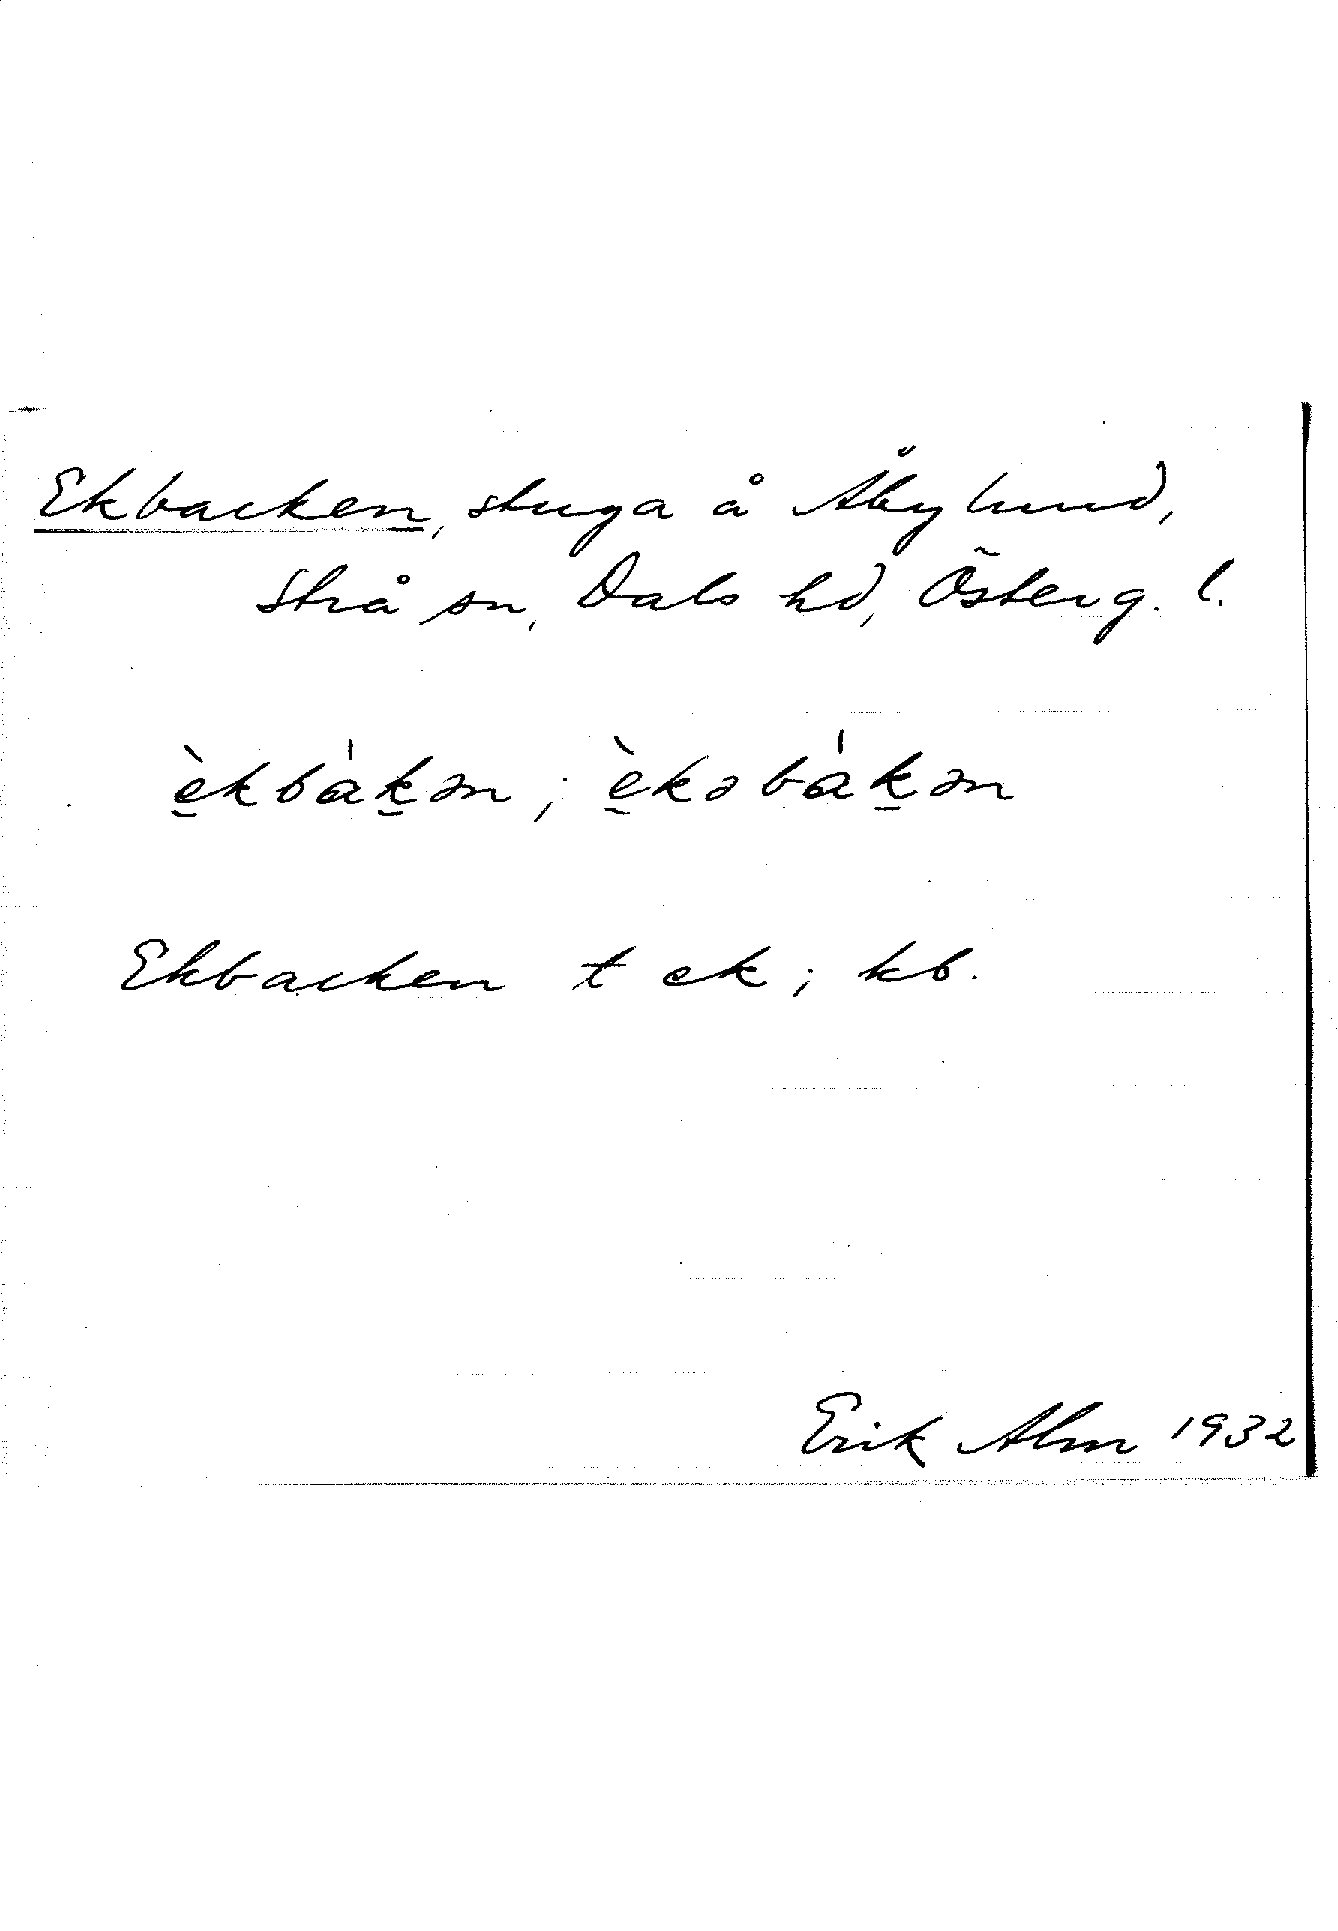 Ekbacken, stuga å Åbylund,
Strå sn, Dals hd, Österg. l.
è̱kbáḵən; è̱kəbáḵən
Ekbacken t ek; kb.
Erik Alm 1932